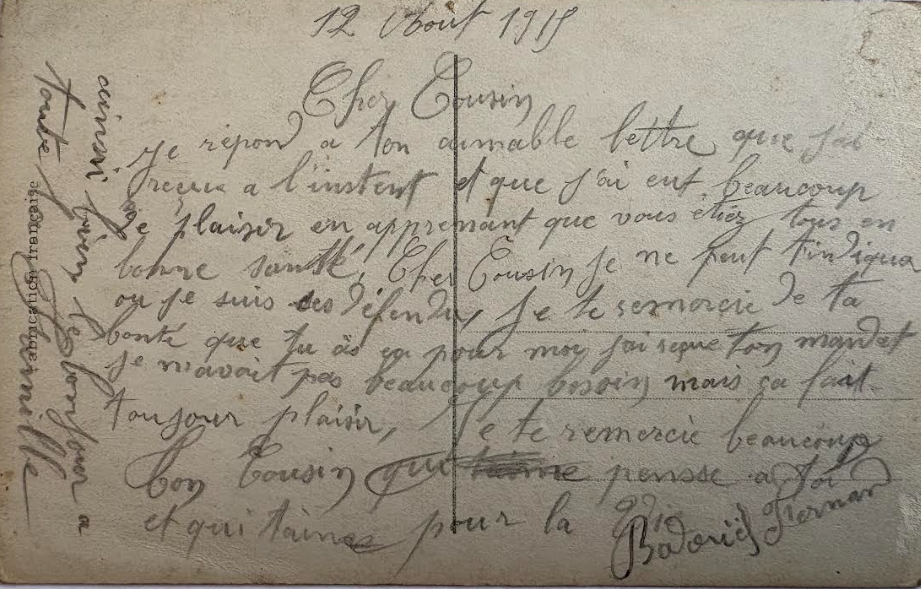 12 Aout 1915
Cher Cousin
Je répond a ton aimable lettre que j'ai
reçue a l'instent et que j'ai eut beaucoup
de plaisir en apprenant que vous étiez tous en
bonne santé, Cher Cousin je ne peut t'indiqua
ou je suis ces défendu, Je te remercie de ta
bonté que tu as eu pour moy j'ai reçue ton mandat
je n'avait pas beaucoup besoin mais ça fait
toujour plaisir, Je te remercie beaucoup
ton Cousin qui pensse a toi
et qui t'aime pour la Vie
Fernand
ainsi bien le bonjour a
toute la famille
Fabrication française